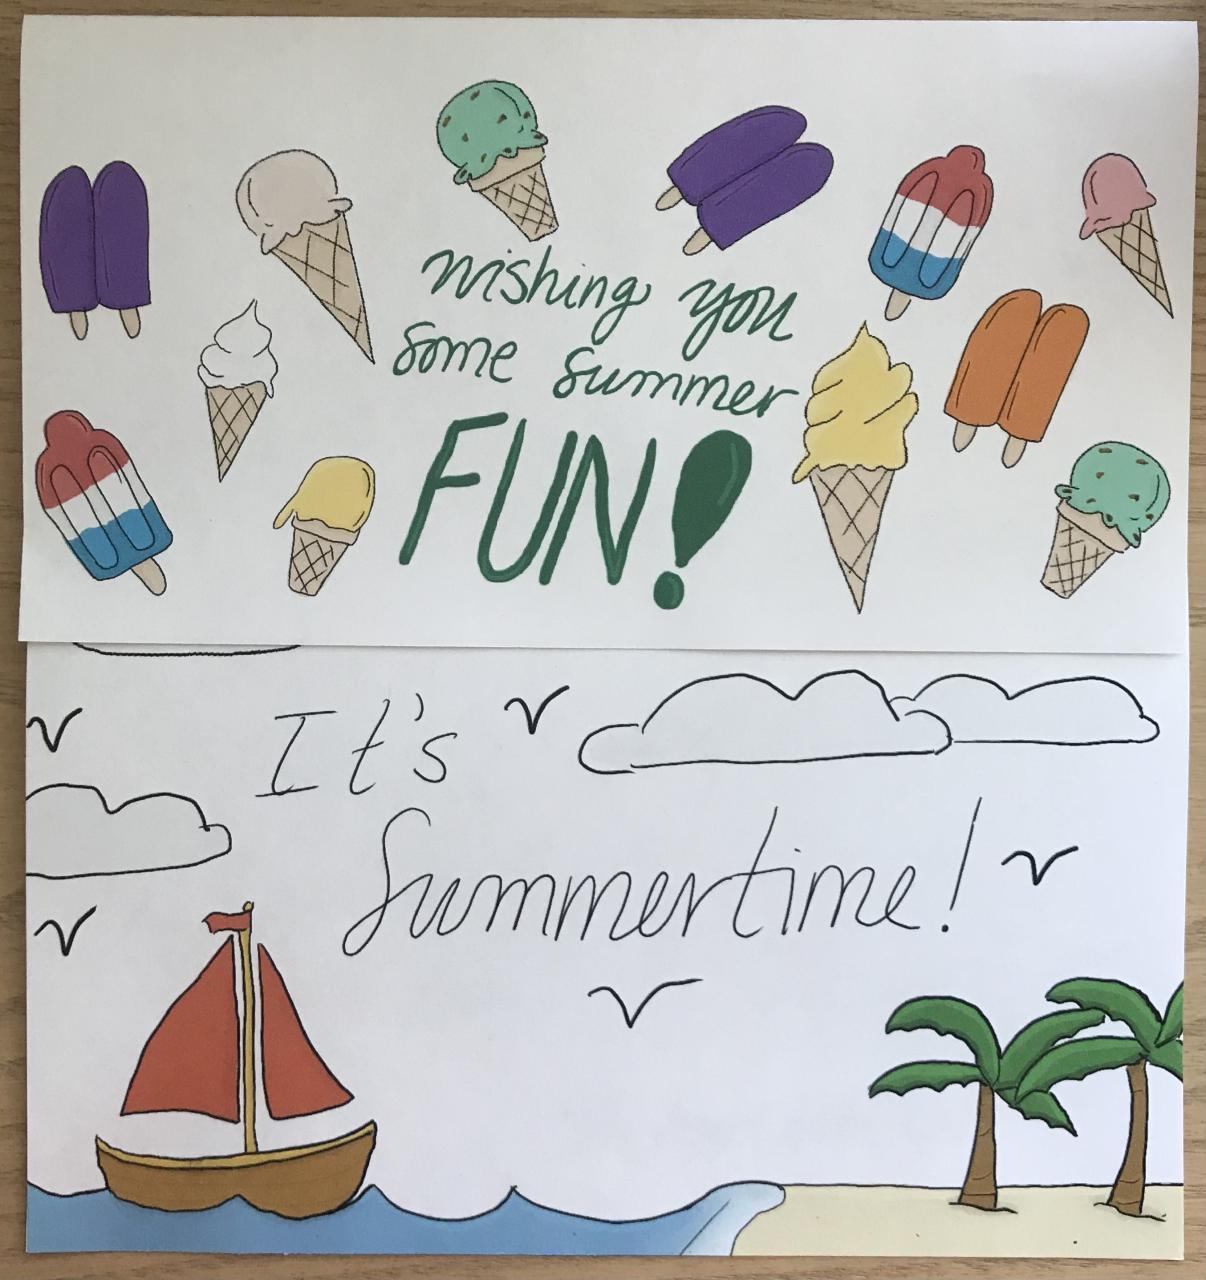 wishing you
some summer
FUN!
It's
Summertime!